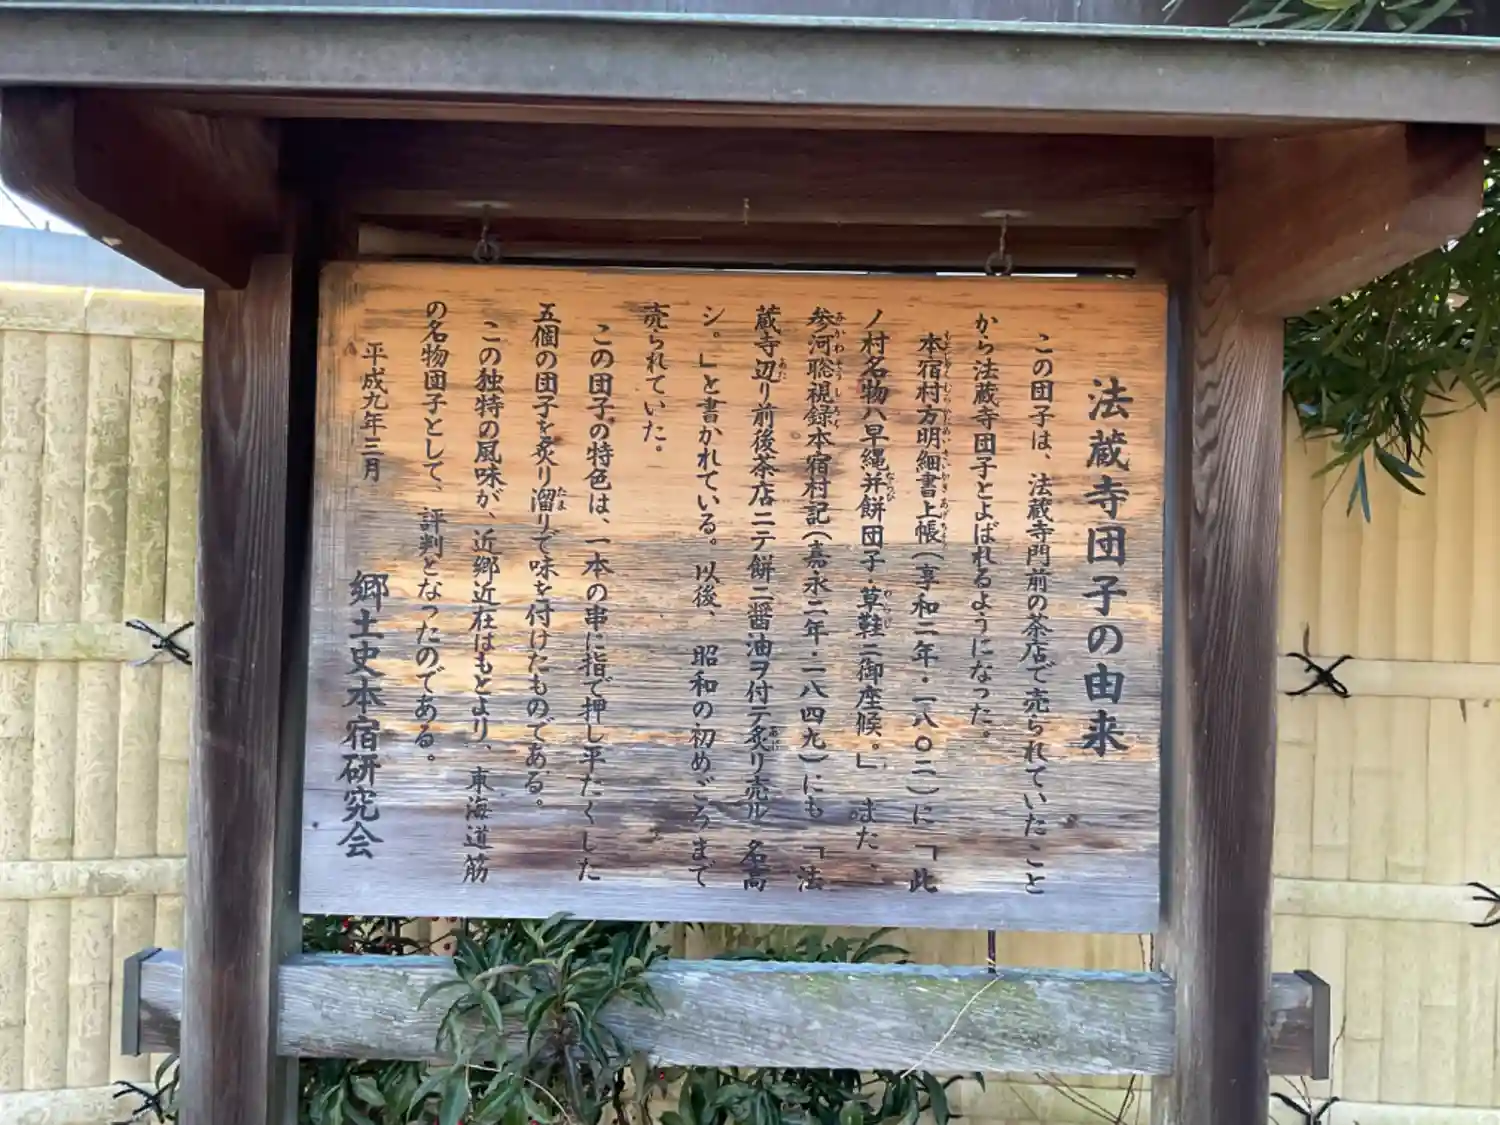 法蔵寺団子の由来
この団子は、法蔵寺門前の茶店で売られていたこと
から法蔵寺団子とよばれるようになった。
本宿村方明細書上帳(享和二年・一八〇二)に「此
ノ村名物ハ早縄并餅団子・草鞋ニ御座候。」また、
参河聡視録本宿村記(嘉永二年・一八四九)にも「法
蔵寺辺り前後茶店ニテ餅ニ醤油ヲ付テ炙リ売ル 名高
シ。」と書かれている。以後、昭和の初めごろまで
売られていた。
この団子の特色は、一本の串に指で押し平たくした
五個の団子を炙り溜りで味を付けたものである。
この独特の風味が、近郷近在はもとより、東海道筋
の名物団子として、評判となったのである。
平成九年三月
郷土史本宿研究会